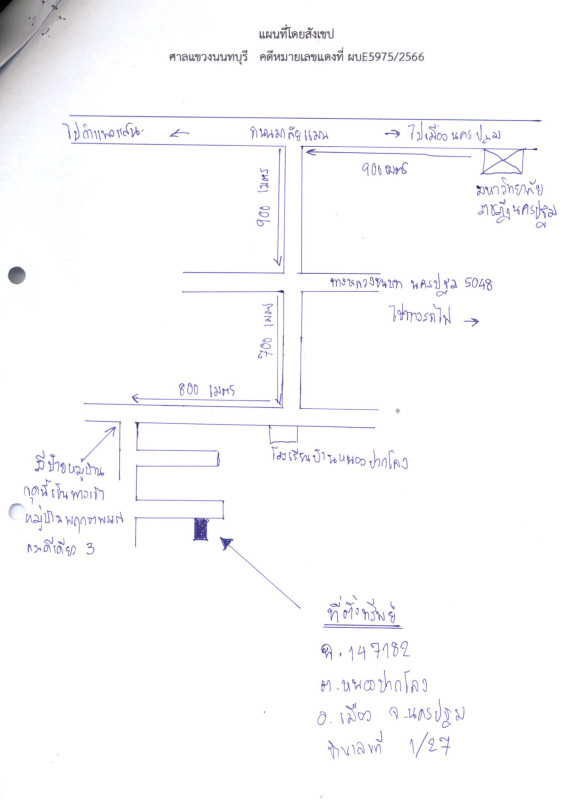 แผนที่โดยสังเขป
ศาลแขวงนนทบุรี คดีหมายเลขแดงที่ ผบE5975/2566
ไปกำแพงแสน
ถนนมาลัยแมน
ไปเมืองนครปฐม
900 เมตร
900 เมตร
มหาวิทยาลัย
ราชภัฏนครปฐม
ทางหลวงชนบท นครปฐม 5048
ไปทางรถไฟ
700 เมตร
800 เมตร
โรงเรียนบ้านหนองปากโลง
มีป้ายหมู่บ้าน
จุดนี้เป็นทางเข้า
หมู่บ้าน
3
ที่ตั้งทรัพย์
ฉ.147182
ต.หนองปากโลง
อ.เมือง จ.นครปฐม
บ้านเลขที่ 1/27